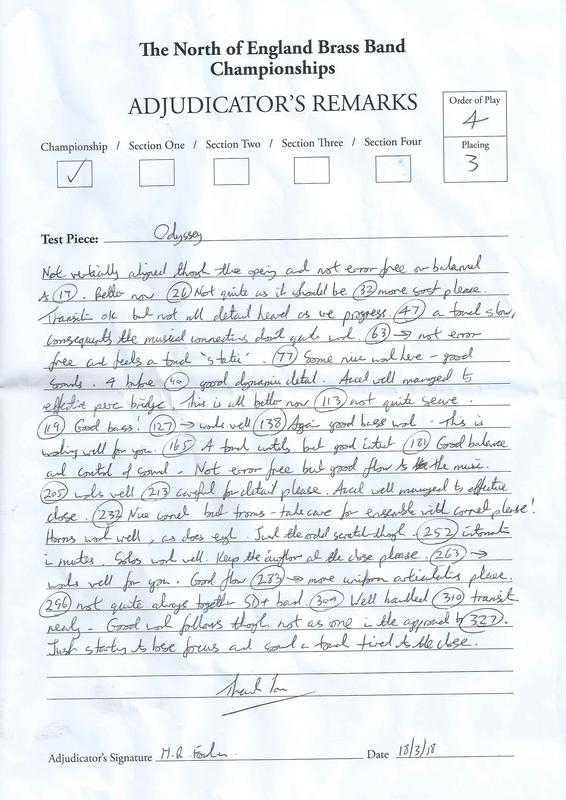 The North of England Brass Band
Championships
ADJUDICATOR'S REMARKS
Order of Play
4
Placing
3
Championship / Section One / Section Two / Section Three / Section Four
✓
Test Piece: Odyssey
Not vertically aligned though the opening and not error free or balanced
to (17). Better now (26) Not quite as it should be (32) more sost please.
Transition ok but not all detail heard as we progress. (47) a touch slow,
consequently the musical connections don't quite work. (63) → not error
free and feels a touch "static". (77) Some nice work here - good
sounds. 4 before (90) good dynamic detail. Accel well managed to
effective perc bridge. This is all better now (113) not quite secure.
(119) Good bass! (127) → works well (138) Again good bass work - This is
working well for you. (165) A touch untidy but good intent (181) Good balance
and control of sound - Not error free but good flow to the music.
(205) works well (213) careful for detail please. Accel well managed to effective
close. (232) Nice cornet but troms - take care for ensemble with cornet please!
Horns work well, as does euph. Just the odd scratch though. (252) intonation
in mutes. Solos work well. Keep the at the close please. (263) →
works well for you. Good flow (283) → more uniform articulation please.
(296) not quite always together SD + band. (309) Well handled (310) transition
nearly - Good work follows though not as one in the approach to (327).
Just starting to lose focus and sound a touch tired to the close.
Thank You
Adjudicator's Signature M.R. Date 18/3/18